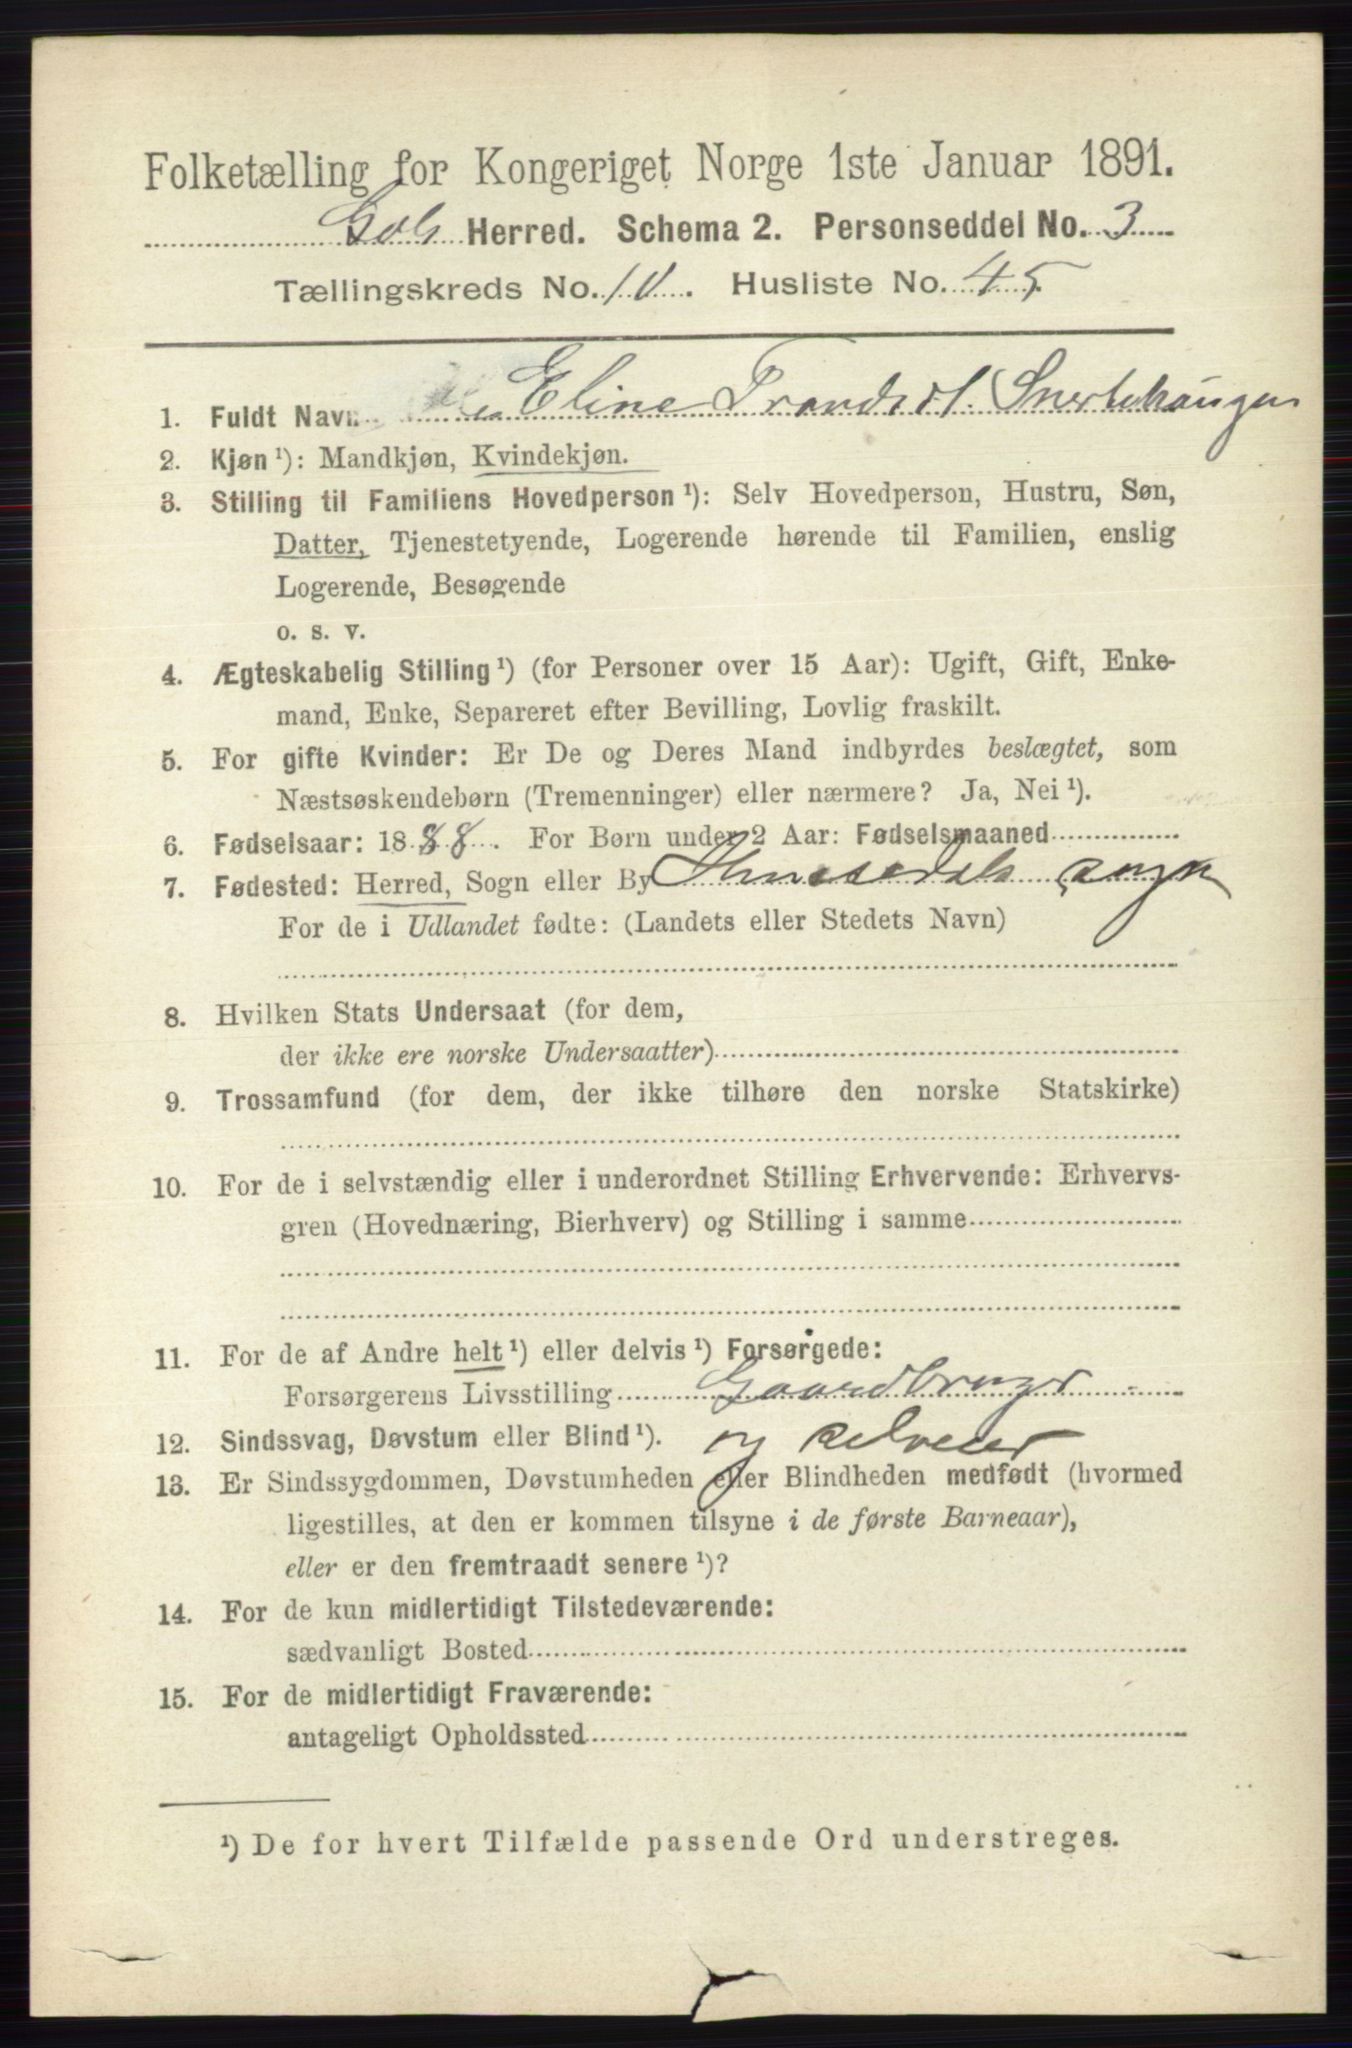 Folketælling for Kongeriget Norge 1ste Januar 1891.
Gols Herred. Schema 2. Personseddel No. 3
Tællingskreds No. 10. Husliste No. 45
1. Fuldt Navn Eline Trondsd.
2. Kjøn ¹): Mandkjøn, Kvindekjøn.
3. Stilling til Familiens Hovedperson ¹): Selv Hovedperson, Hustru, Søn,
Datter, Tjenestetyende, Logerende hørende til Familien, enslig
Logerende, Besøgende
o. s. v.
4. Ægteskabelig Stilling ¹) (for Personer over 15 Aar): Ugift, Gift, Enke-
mand, Enke, Separeret efter Bevilling, Lovlig fraskilt.
5. For gifte Kvinder: Er De og Deres Mand indbyrdes beslægtet, som
Næstsøskendebørn (Tremenninger) eller nærmere? Ja, Nei ¹).
6. Fødselsaar: 1888. For Børn under 2 Aar: Fødselsmaaned
7. Fødested: Herred, Sogn eller By Hemsedals sogn
For de i Udlandet fødte: (Landets eller Stedets Navn)
8. Hvilken Stats Undersaat (for dem,
der ikke ere norske Undersaatter)
9. Trossamfund (for dem, der ikke tilhøre den norske Statskirke)
10. For de i selvstændig eller i underordnet Stilling Erhvervende: Erhvervs-
gren (Hovednæring, Bierhverv) og Stilling i samme
11. For de af Andre helt ¹) eller delvis ¹) Forsørgede:
Forsørgerens Livsstilling Gaardbruger
12. Sindssvag, Døvstum eller Blind ¹). og selveier
13. Er Sindssygdommen, Døvstumheden eller Blindheden medfødt (hvormed
ligestilles, at den er kommen tilsyne i de første Barneaar),
eller er den fremtraadt senere ¹)?
14. For de kun midlertidigt Tilstedeværende:
sædvanligt Bosted
15. For de midlertidigt Fraværende:
antageligt Opholdssted
¹) De for hvert Tilfælde passende Ord understreges.